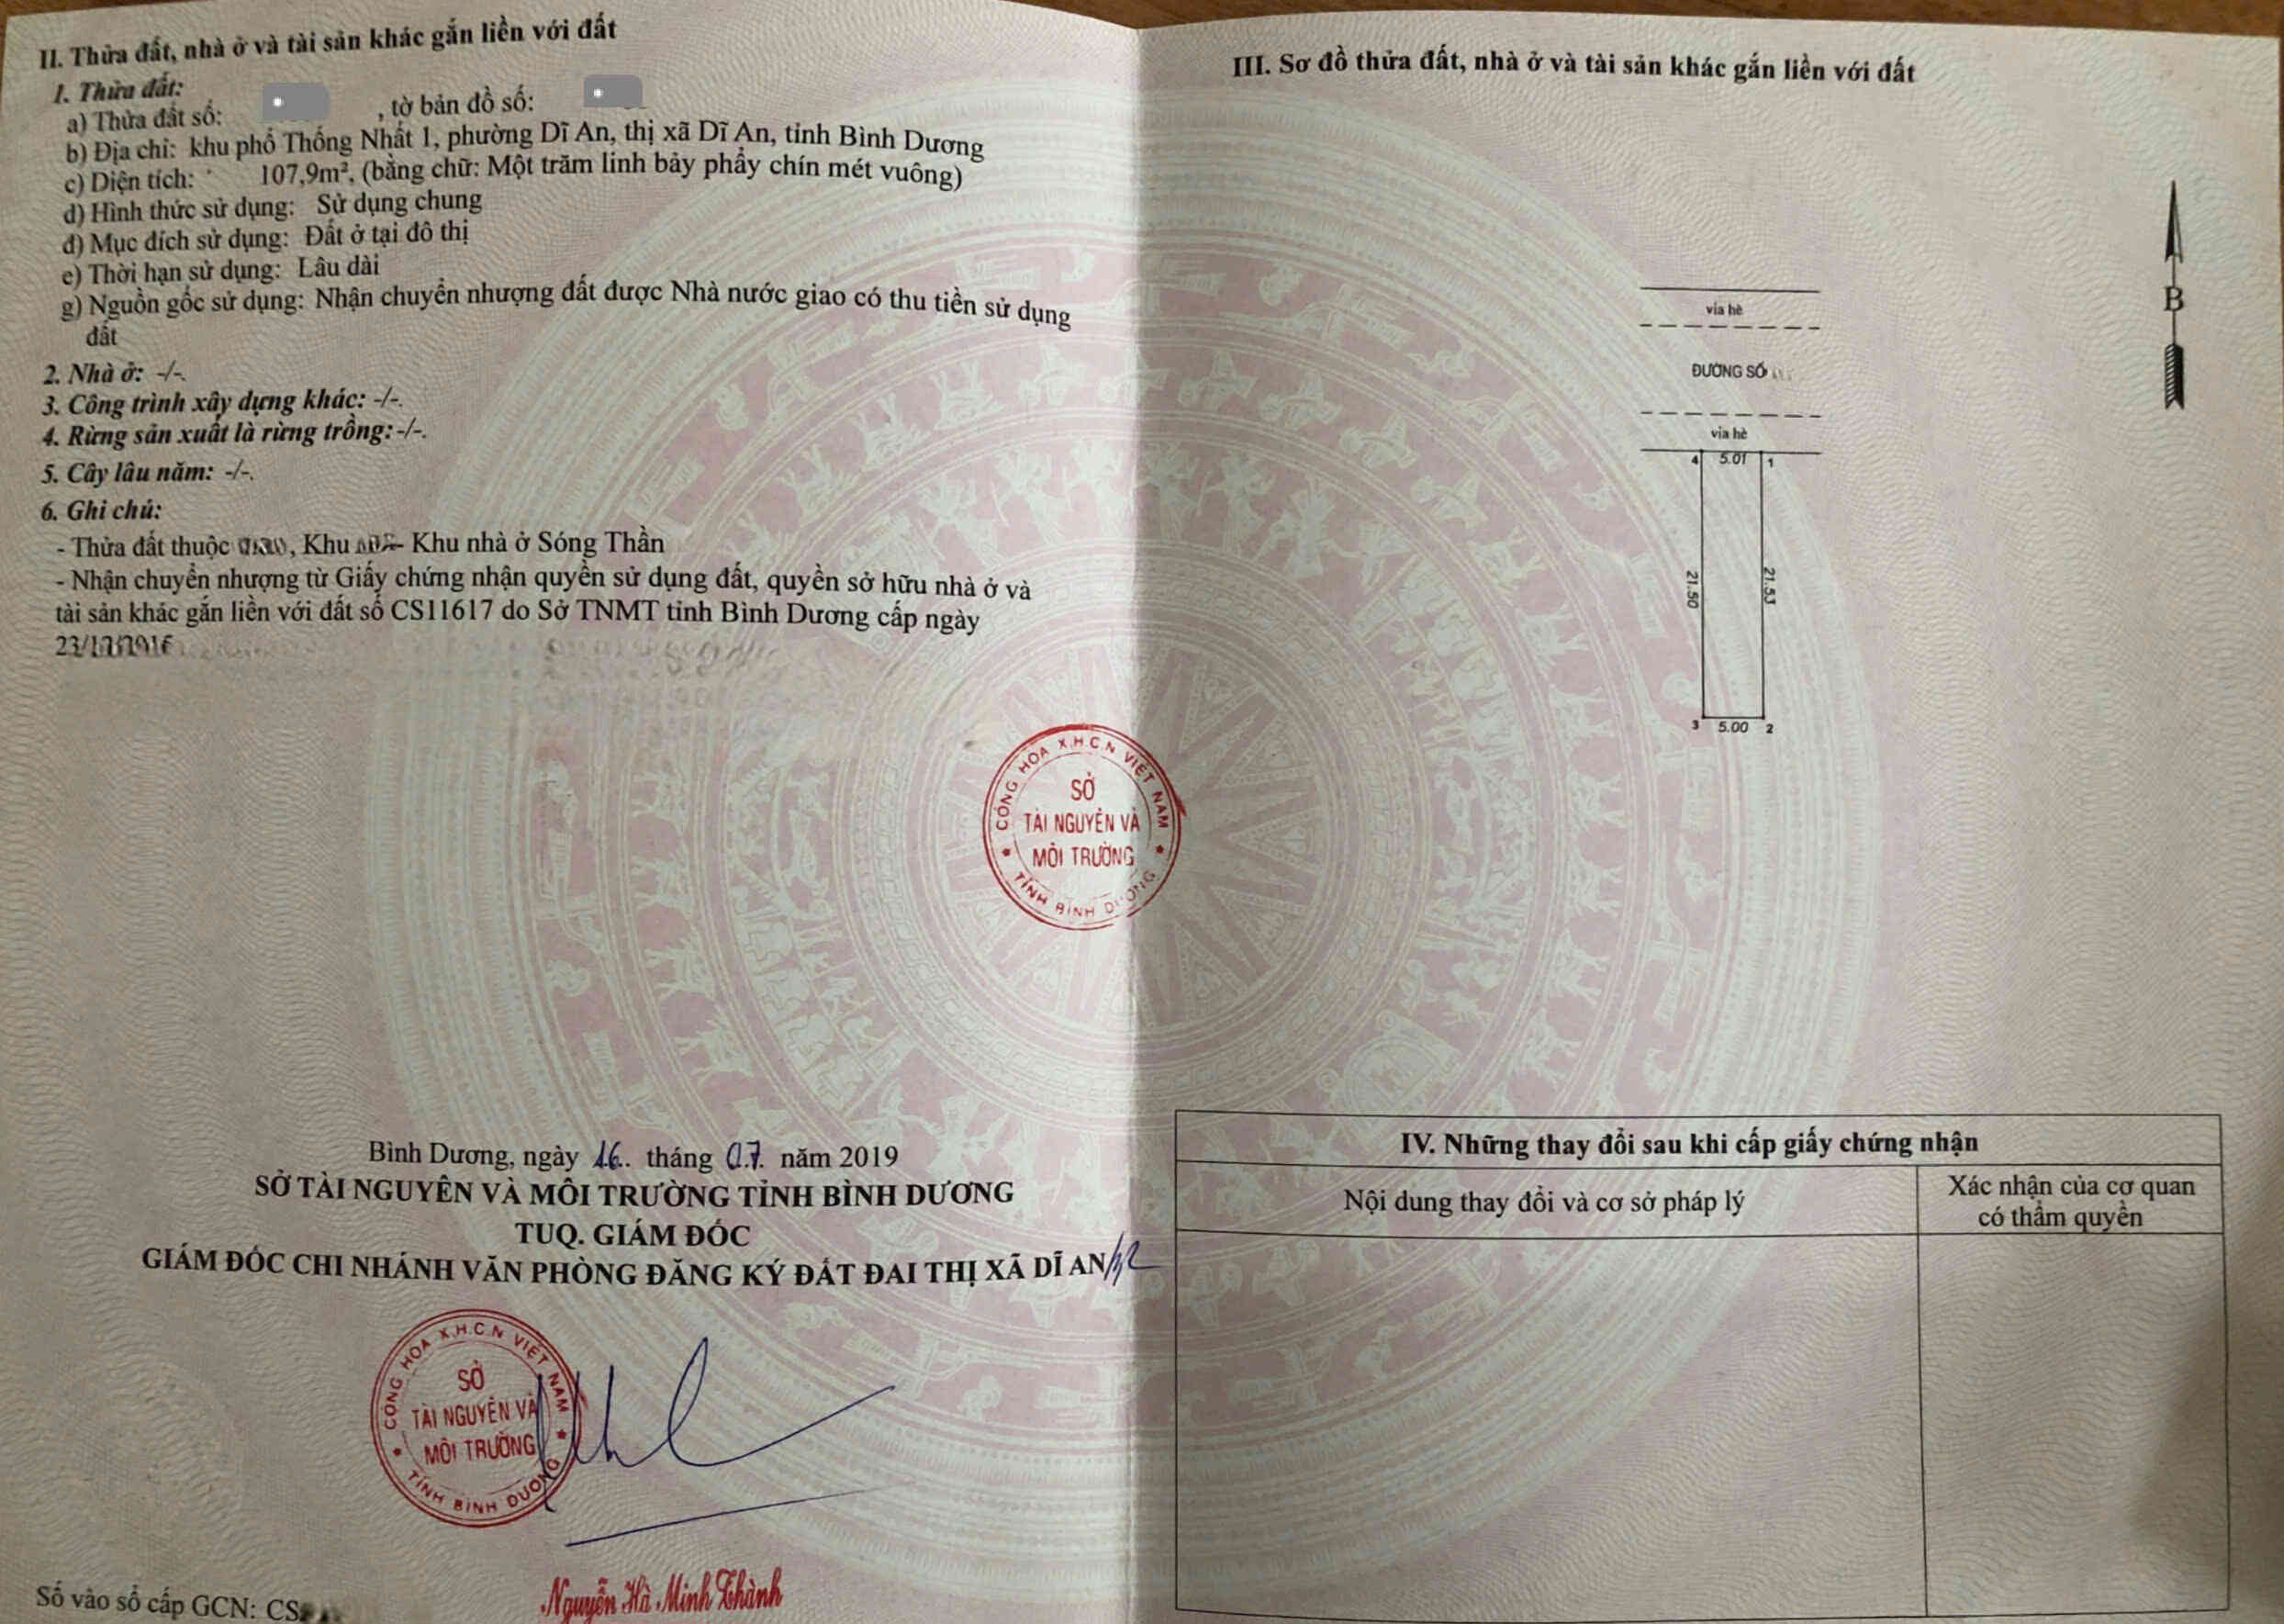 II. Thửa đất, nhà ở và tài sản khác gắn liền với đất
1. Thửa đất:
a) Thửa đất số: , tờ bản đồ số:
b) Địa chỉ: khu phố Thống Nhất 1, phường Dĩ An, thị xã Dĩ An, tỉnh Bình Dương
c) Diện tích: 107,9m², (bằng chữ: Một trăm linh bảy phẩy chín mét vuông)
d) Hình thức sử dụng: Sử dụng chung
đ) Mục đích sử dụng: Đất ở tại đô thị
e) Thời hạn sử dụng: Lâu dài
g) Nguồn gốc sử dụng: Nhận chuyển nhượng đất được Nhà nước giao có thu tiền sử dụng
đất
2. Nhà ở: -/-.
3. Công trình xây dựng khác: -/-.
4. Rừng sản xuất là rừng trồng: -/-.
5. Cây lâu năm: -/-.
6. Ghi chú:
- Thửa đất thuộc , Khu - Khu nhà ở Sóng Thần
- Nhận chuyển nhượng từ Giấy chứng nhận quyền sử dụng đất, quyền sở hữu nhà ở và
tài sản khác gắn liền với đất số CS11617 do Sở TNMT tỉnh Bình Dương cấp ngày
CỘNG HÒA X.H.C.N VIỆT NAM
SỞ
TÀI NGUYÊN VÀ
MÔI TRƯỜNG
TỈNH BÌNH DƯƠNG
Bình Dương, ngày 16 tháng 07 năm 2019
SỞ TÀI NGUYÊN VÀ MÔI TRƯỜNG TỈNH BÌNH DƯƠNG
TUQ. GIÁM ĐỐC
GIÁM ĐỐC CHI NHÁNH VĂN PHÒNG ĐĂNG KÝ ĐẤT ĐAI THỊ XÃ DĨ AN
CỘNG HÒA X.H.C.N VIỆT NAM
SỞ
TÀI NGUYÊN VÀ
MÔI TRƯỜNG
TỈNH BÌNH DƯƠNG
Nguyễn Hà Minh Thành
Số vào sổ cấp GCN: CS
III. Sơ đồ thửa đất, nhà ở và tài sản khác gắn liền với đất
B
vỉa hè
ĐƯỜNG SỐ
vỉa hè
4 5.01 1
21.50 21.53
3 5.00 2
IV. Những thay đổi sau khi cấp giấy chứng nhận
Nội dung thay đổi và cơ sở pháp lý
Xác nhận của cơ quan
có thẩm quyền